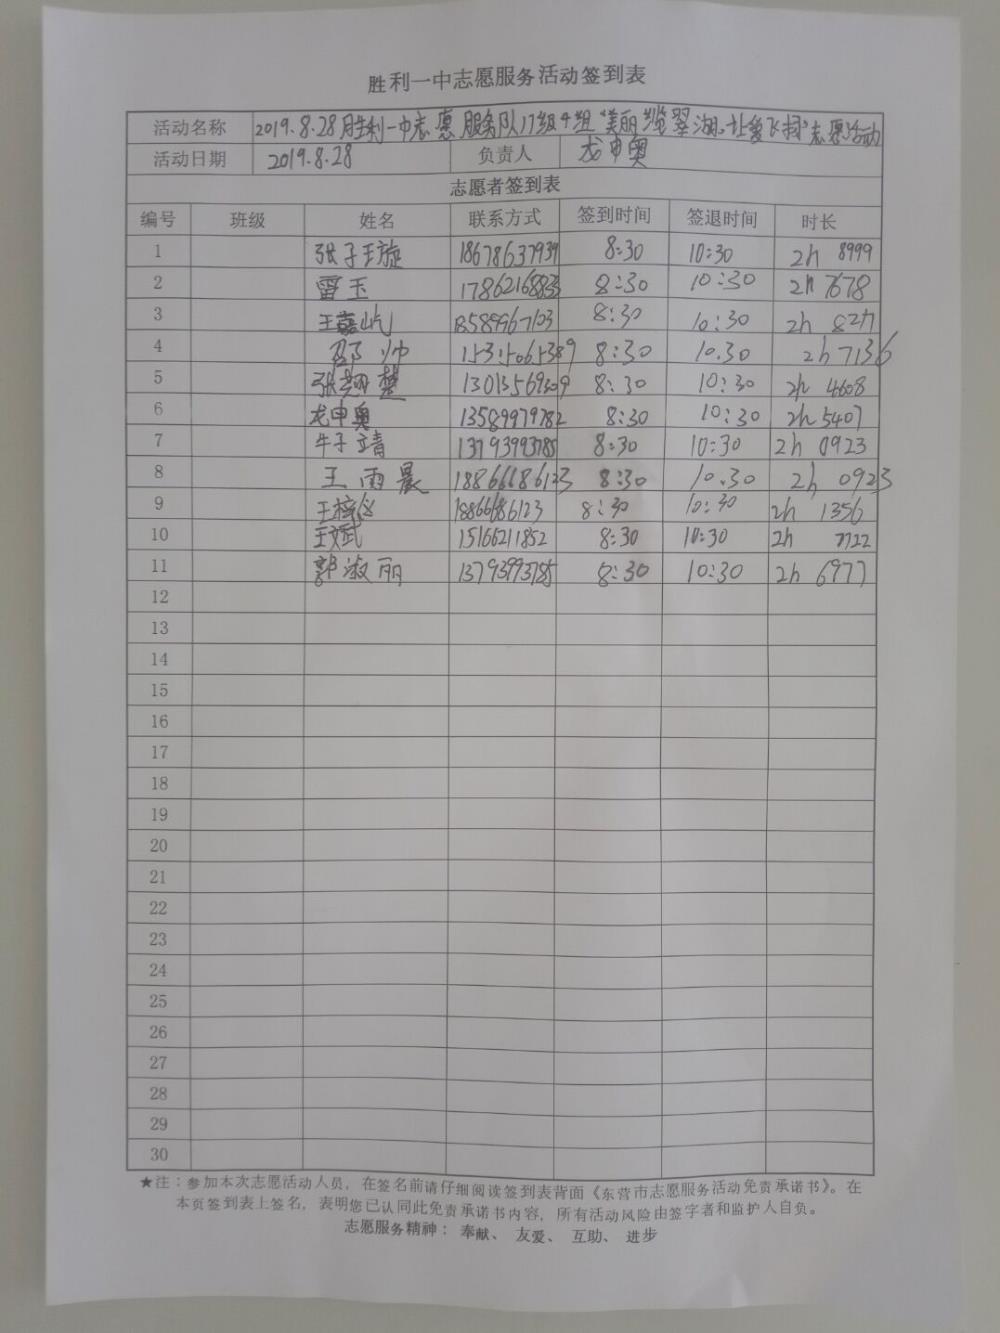 胜利一中志愿服务活动签到表
活动名称 2019.8.28胜利一中志愿服务队17级4组"美丽揽翠湖,让爱飞扬"志愿活动
活动日期 2019.8.28 负责人 龙申奥
志愿者签到表
编号 班级 姓名 联系方式 签到时间 签退时间 时长
1 张子玉旋 18678637939 8:30 10:30 2h 8999
2 雷玉 17862168833 8:30 10:30 2h 7678
3 王嘉屹 18589967103 8:30 10:30 2h
4 邵帅 15315065389 8:30 10.30 2h 7136
5 张翔楚 13013569309 8:30 10:30 2h 4608
6 龙申奥 13589979782 8:30 10:30 2h 5407
7 牛子靖 13793993785 8:30 10:30 2h 0923
8 王雨晨 18866686123 8:30 10.30 2h 0923
9 18866686123 8:30 10:30 2h 1356
10 王斌 15166211852 8:30 10:30 2h 7722
11 郭淑丽 13793993785 8:30 10:30 2h 6977
12
13
14
15
16
17
18
19
20
21
22
23
24
25
26
27
28
29
30
★注:参加本次志愿活动人员,在签名前请仔细阅读签到表背面《东营市志愿服务活动免责承诺书》。在
本页签到表上签名,表明您已认同此免责承诺书内容,所有活动风险由签字者和监护人自负。
志愿服务精神:奉献、友爱、互助、进步